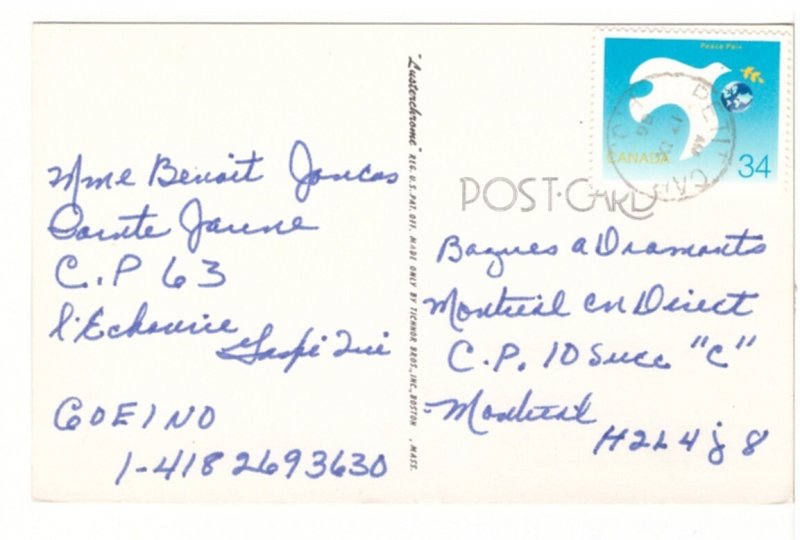 Mme Benoit Joncas
Pointe Jaune
C.P 63
l'Echourie
Gaspé Qué
G0E1N0
1-418 2693630
"Lusterchrome" REG. U.S. PAT. OFF. MADE ONLY BY TICHNOR BROS., INC., BOSTON, MASS.
Peace Paix
CANADA
34
POST·CARD
Bagues a Diamants
Montréal en Direct
C.P. 10 Succ "C"
Montréal
H2L 4J8